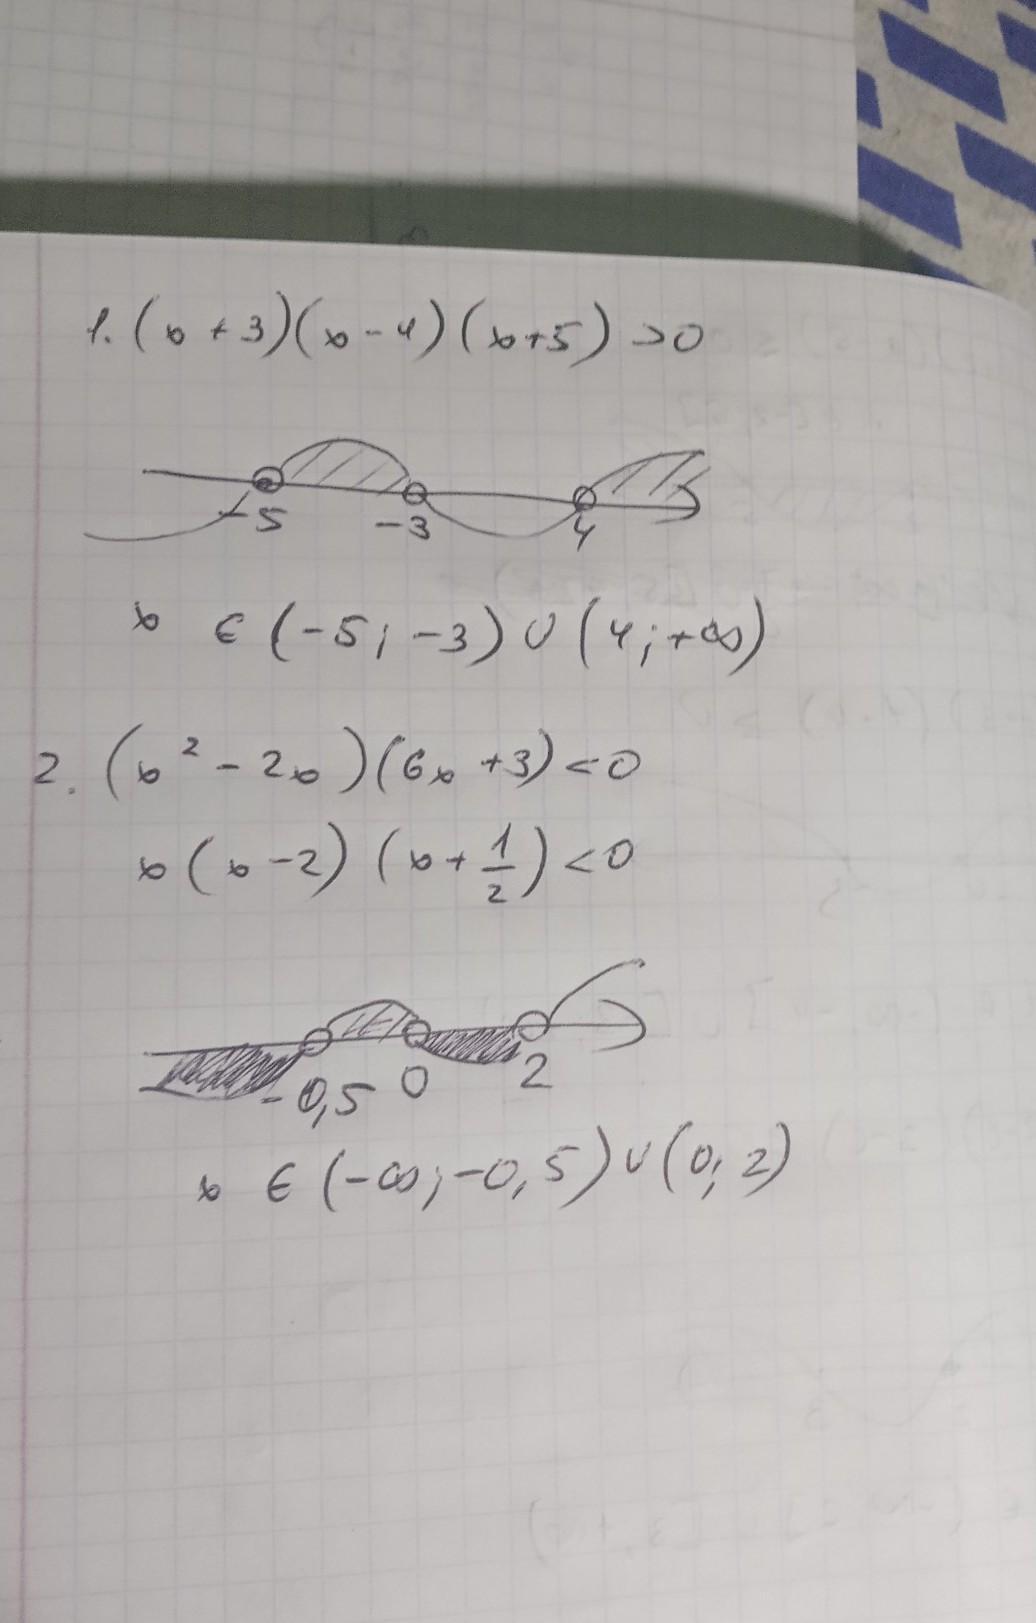 1. (x + 3)(x - 4)(x + 5) > 0
-5 -3 4
x ∈ (-5; -3) ∪ (4; +∞)
2. (x² - 2x)(6x + 3) < 0
x(x - 2)(x + 1/2) < 0
-0,5 0 2
x ∈ (-∞; -0,5) ∪ (0; 2)